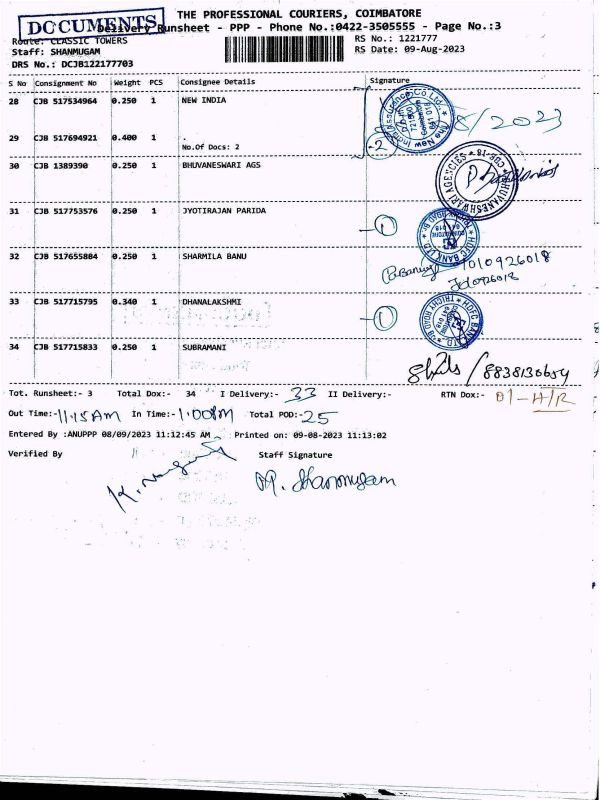 THE PROFESSIONAL COURIERS, COIMBATORE
DOCUMENTS
Delivery Runsheet - PPP - Phone No.:0422-3505555 - Page No.:3
Route: CLASSIC TOWERS
RS No.: 1221777
Staff: SHANMUGAM
RS Date: 09-Aug-2023
DRS No.: DCJB122177703
S No Consignment No Weight PCS Consignee Details Signature
28 CJB 517534964 0.250 1 NEW INDIA
8/2023
29 CJB 517694921 0.400 1 .
No.Of Docs: 2
2
30 CJB 1389390 0.250 1 BHUVANESWARI AGS
BHUVANESHWARI AGENCIES
31 CJB 517753576 0.250 1 JYOTIRAJAN PARIDA
1
HDFC BANK LTD.
32 CJB 517655884 0.250 1 SHARMILA BANU
33 CJB 517715795 0.340 1 DHANALAKSHMI
1
HDFC BANK LTD
TRICHY ROAD
34 CJB 517715833 0.250 1 SUBRAMANI
/8838130654
Tot. Runsheet:- 3 Total Dox:- 34 I Delivery:- 33 II Delivery:- RTN Dox:- 01-H/R
Out Time:- 11:15 AM In Time:- 1:00PM Total POD:- 25
Entered By :ANUPPP 08/09/2023 11:12:45 AM Printed on: 09-08-2023 11:13:02
Verified By Staff Signature
M. Shanmugam